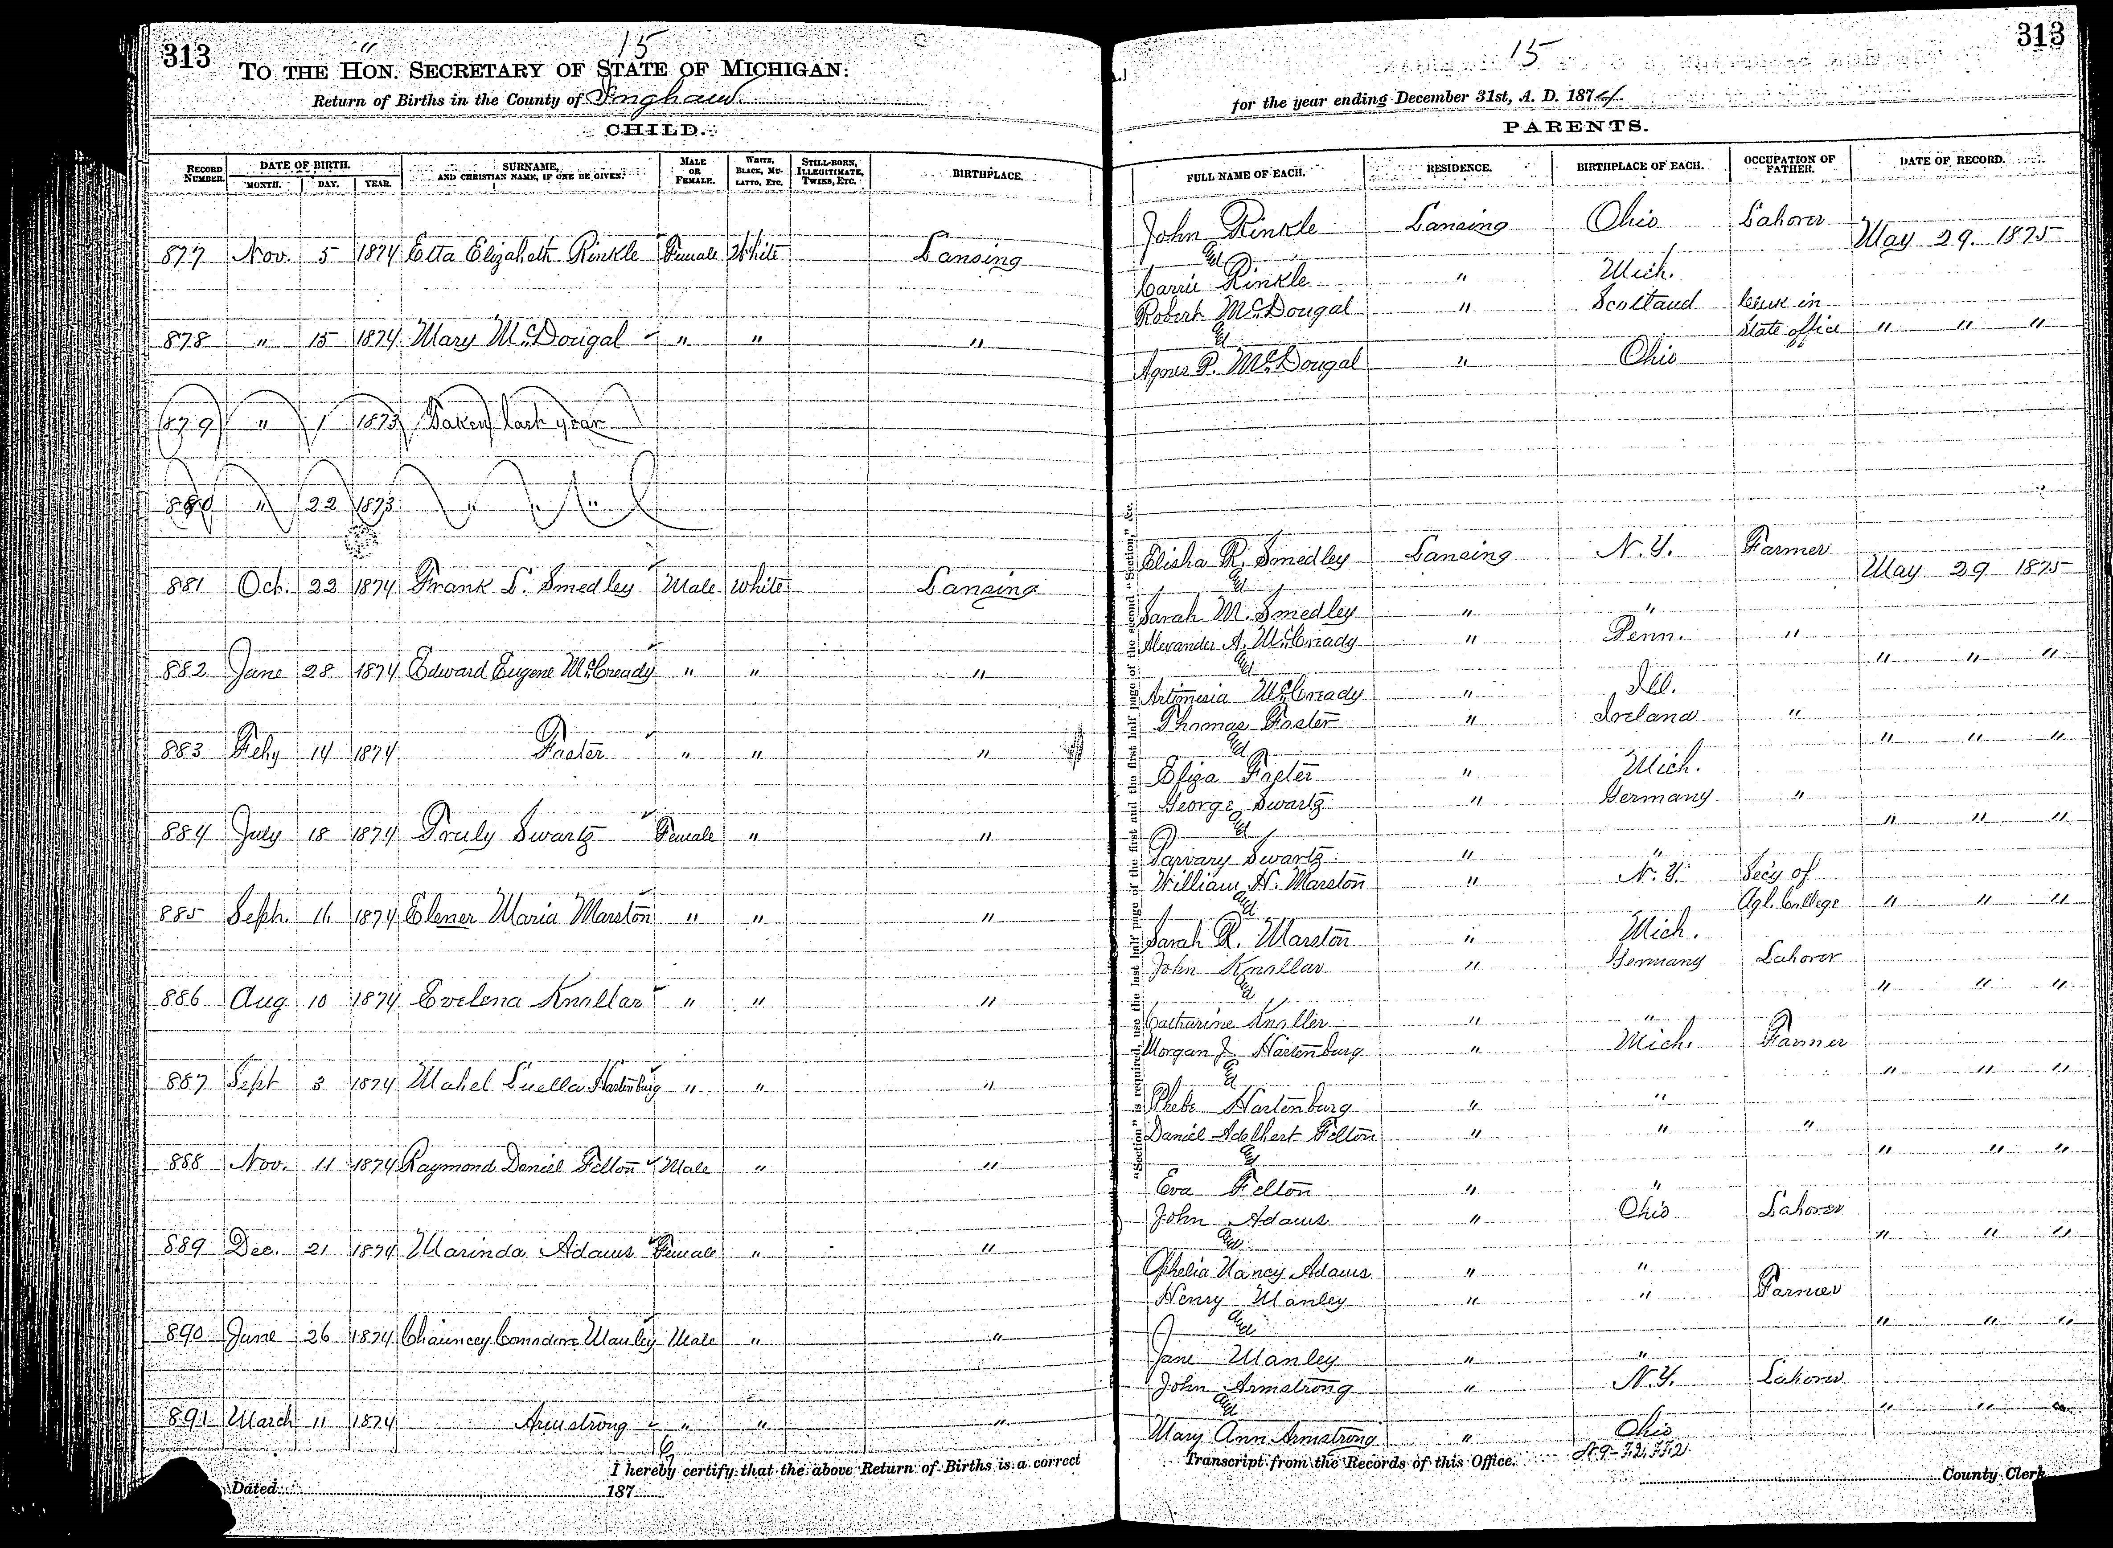 313 " 15
TO THE HON. SECRETARY OF STATE OF MICHIGAN:
Return of Births in the County of Ingham
CHILD.
RECORD NUMBER. DATE OF BIRTH. MONTH. DAY. YEAR. SURNAME, AND CHRISTIAN NAME, IF ONE BE GIVEN. MALE OR FEMALE. WHITE, BLACK, MULATTO, ETC. STILL-BORN, ILLEGITIMATE, TWINS, ETC. BIRTHPLACE.
877 Nov. 5 1874 Etta Elizabeth Rinkle Female White Lansing
878 " 15 1874 Mary McDougal " " "
879 " 1 1873 Taken last year
880 " 22 1873 " " "
881 Oct. 22 1874 Frank L. Smedley Male White Lansing
882 Jane 28 1874 Edward Eugene McCready " " "
883 Feby 14 1874 Foster " " "
884 July 18 1874 Truly Swartz Female " "
885 Sept. 11 1874 Elener Maria Marston " " "
886 Aug 10 1874 Evelena Knollar " " "
887 Sept 3 1874 Mabel Luella Hartenburg " " "
888 Nov. 11 1874 Raymond Daniel Felton Male " "
889 Dec. 21 1874 Marinda Adams Female " "
890 June 26 1874 Chauncey Manley Male " "
891 March 11 1874 Armstrong " " "
I hereby certify that the above Return of Births is a correct
Dated 187
15 313
for the year ending December 31st, A. D. 1874
PARENTS.
FULL NAME OF EACH. RESIDENCE. BIRTHPLACE OF EACH. OCCUPATION OF FATHER. DATE OF RECORD.
John Rinkle Lansing Ohio Laborer
and May 29 1875
Carrie Rinkle " Mich.
Robert McDougal " Scotland Clerk in
and State office " " "
Agnes P. McDougal " Ohio
Elisha R. Smedley Lansing N.Y. Farmer
and May 29 1875
Sarah M. Smedley " "
Alexander A. McCready " Penn. "
and " " "
Artimesia McCready " Ill.
Thomas Foster " Ireland "
and " " "
Eliza Foster " Mich.
George Swartz " Germany "
and " " "
Swartz " "
William H. Marston " N.Y. Secy of
and Agl. College " " "
Sarah R. Marston " Mich.
John Knollar " Germany Laborer
and " " "
Catharine Knoller " "
Morgan J. Hartenburg " Mich. Farmer
and " " "
Phebe Hartenburg " "
Daniel Adelbert Felton " " "
and " " "
Eva Felton " "
John Adams " Ohio Laborer
and " " "
Ophelia Nancy Adams " "
Henry Manley " " Farmer
and " " "
Jane Manley " "
John Armstrong " N.Y. Laborer
and " " "
Mary Ann Armstrong " Ohio
Transcript from the Records of this Office.
County Clerk